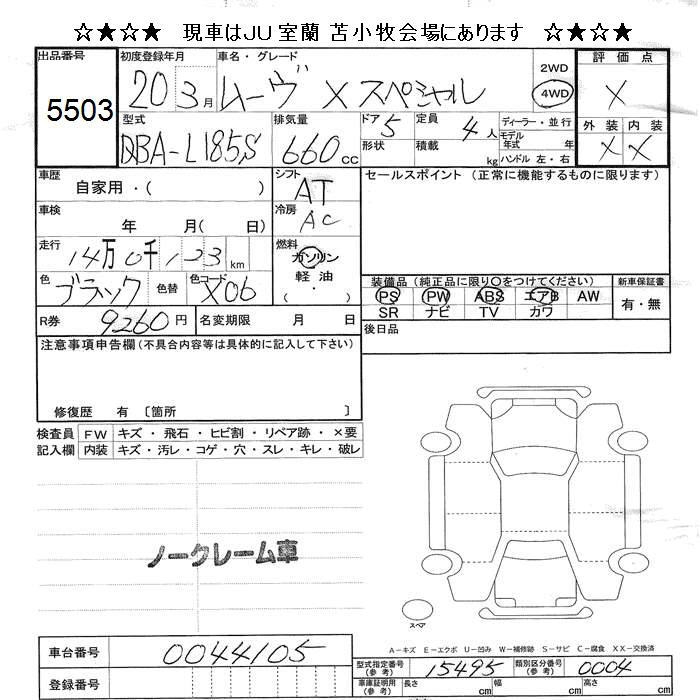 ☆★☆★ 現車はJU室蘭 苫小牧会場にあります ☆★☆★
出品番号 5503
初度登録年月 20 3月
車名・グレード ムーヴ X スペシャル
2WD
4WD
評価点 X
外装 内装
X X
型式 DBA-L185S
排気量 660 cc
ドア 5
形状
定員 4人
積載 kg
ディーラー・並行
モデル年式 年
ハンドル 左・右
車歴 自家用・( )
シフト AT
セールスポイント (正常に機能するものに限ります)
車検 年 月( 日)
冷房 AC
走行 14万0千123 km
燃料 ガソリン
軽油
・
色 ブラック 色替 色コード X06
装備品 (純正品に限り○をつけてください)
新車保証書
PS PW ABS エアB AW
SR ナビ TV カワ
有・無
R券 9260円 名変期限 月 日
後日品
注意事項申告欄(不具合内容等は具体的に記入して下さい)
修復歴 有 〔箇所 〕
検査員 FW キズ・飛石・ヒビ割・リペア跡・×要
記入欄 内装 キズ・汚レ・コゲ・穴・スレ・キレ・破レ
ノークレーム車
スペア
A-キズ E-エクボ U-凹み W-補修跡 S-サビ C-腐食 XX-交換済
車台番号 0044105
登録番号
型式指定番号(参考) 15495 類別区分番号(参考) 0004
車庫証明用(参考) 長さ cm 幅 cm 高さ cm